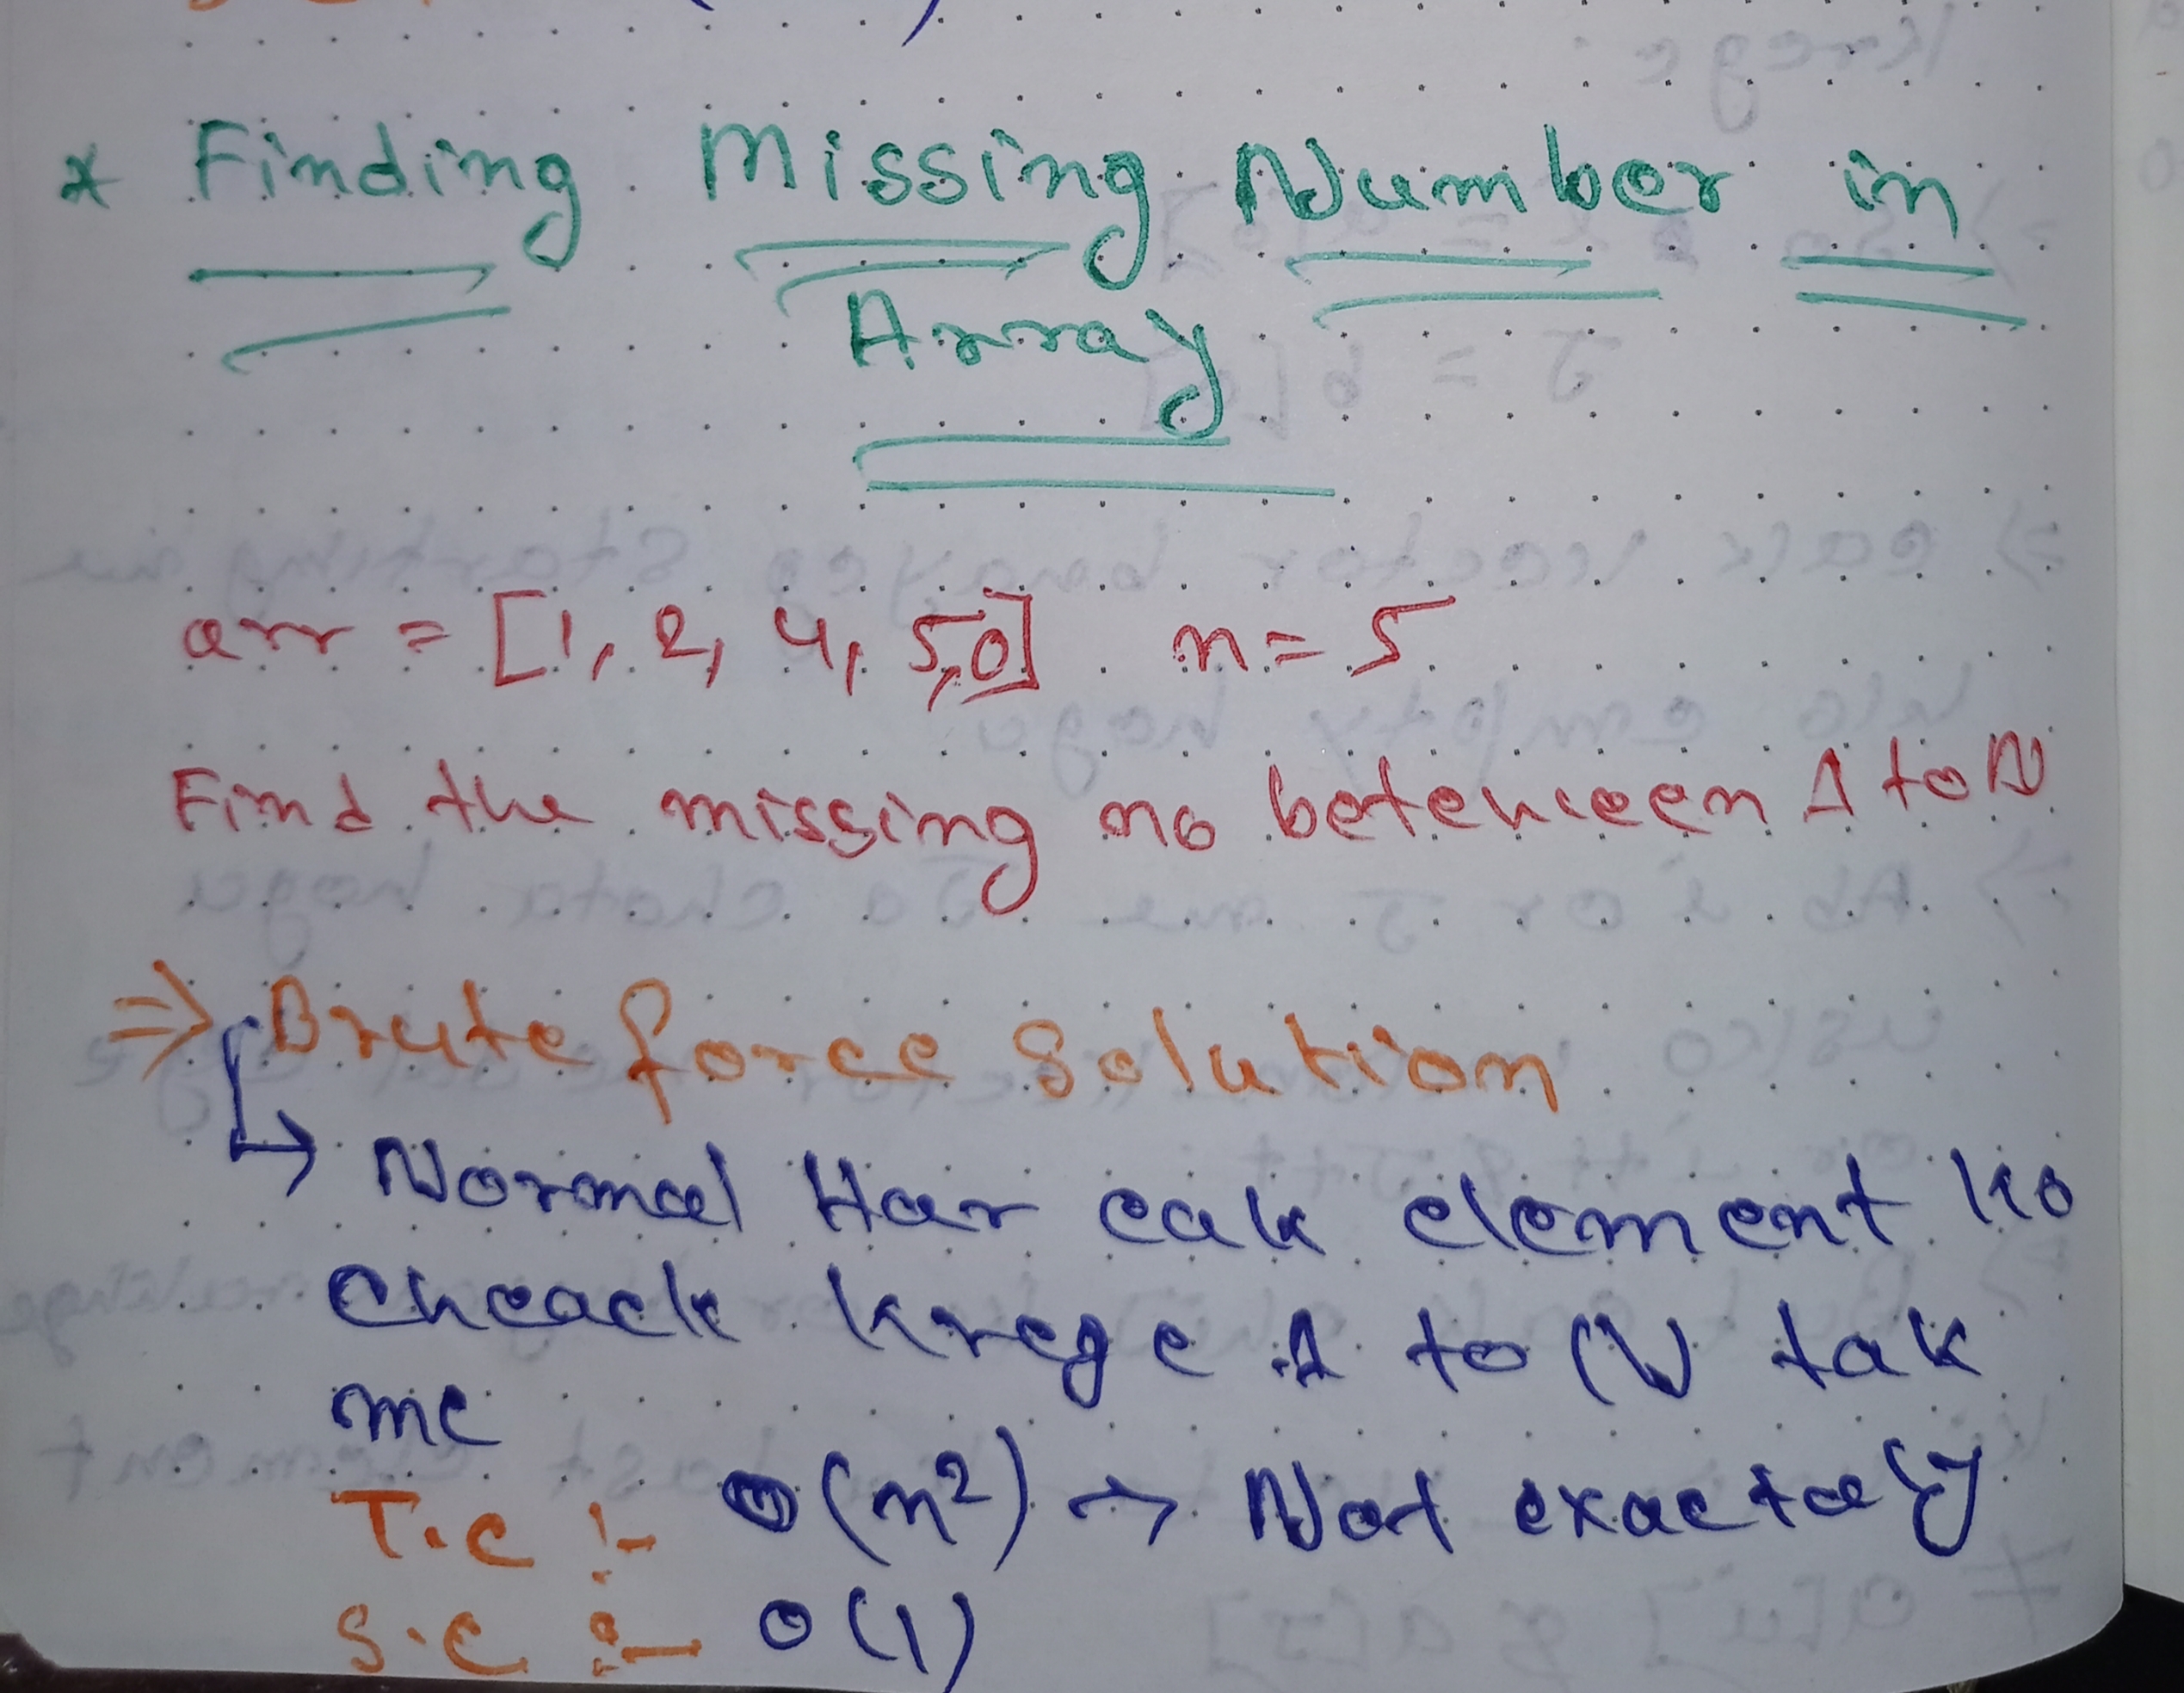 * Finding Missing Number in
Array
arr = [1, 2, 4, 5,0] n = 5
Find the missing no betenceen 1 to N
⇒ Brute force Solution
↳ Normal Har eak element ko
Cheack krege 1 to N tak
me
T.C :- O(n²) → Not exactely
S.C :- O(1)